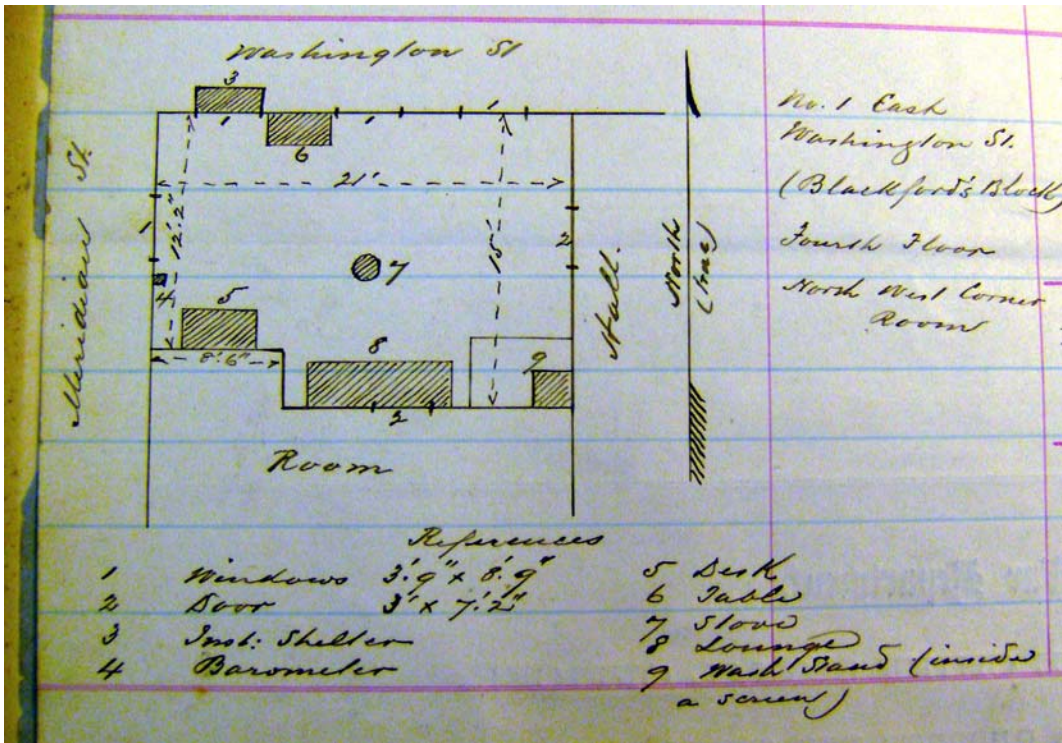 Washington St
3
1
1
1
6
21'
Meridian St.
1
12'.2"
15'
2
4
7
5
8'.6"
8
9
2
Hall.
North
(true)
Room
No. 1 East
Washington St.
(Blackford's Block)
Fourth Floor
North West Corner
Room
References
1 Windows 3'.9" x 8'.9"
2 Door 3' x 7'.2"
3 Inst: Shelter
4 Barometer
5 Desk
6 Table
7 Stove
8 Lounge
9 Wash Stand (inside
a screen)